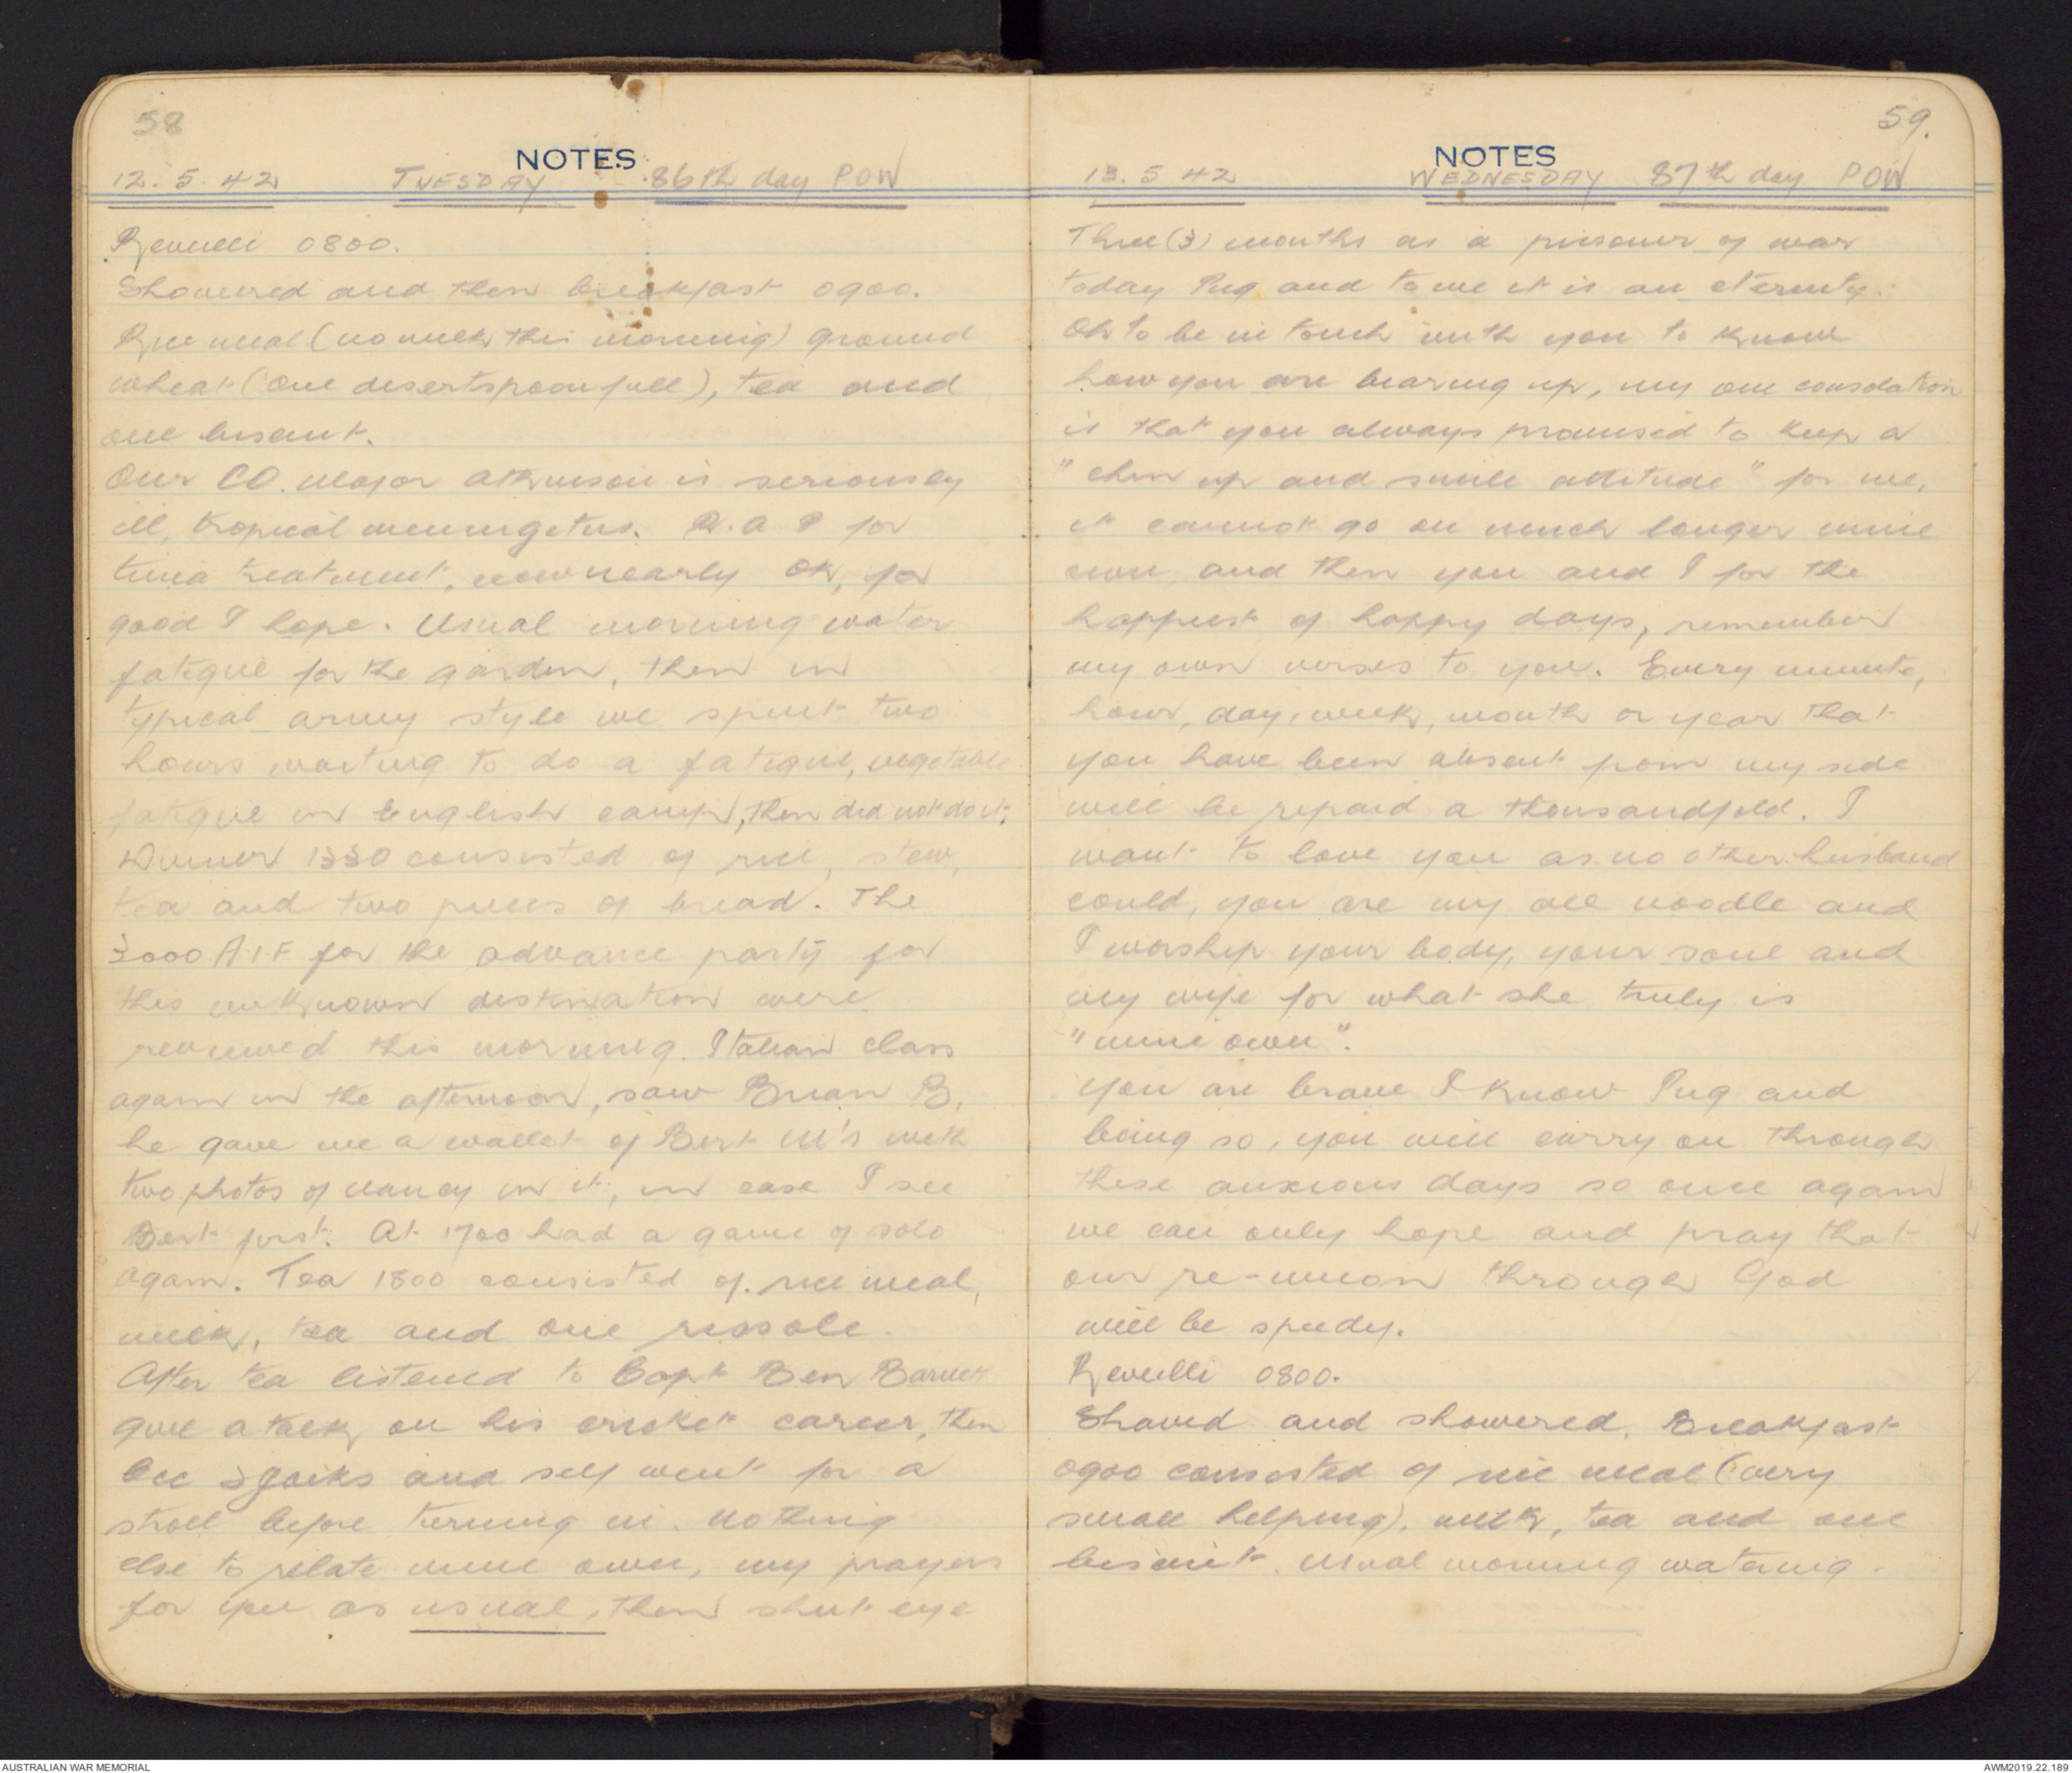 58
NOTES
12. 5. 42 TUESDAY 86th day POW
Reveille 0800.
Showered and then breakfast 0900.
Rice meal (no milk this morning) ground
wheat (one desertspoonfull), tea and
one biscuit.
Our CO. Major Atkinson is seriously
ill, tropical meningitus. R.A.P for
tinia treatment, now nearly OK, for
good I hope. Usual morning water
fatigue for the garden, then in
typical army style we spent two
hours waiting to do a fatigue, vegetable
fatigue in English camp, then did not do it.
Dinner 1330 consisted of rice, stew,
tea and two pieces of bread. The
3000 A.I.F for the advance party for
this unknown destination were
reviewed this morning. Italian class
again in the afternoon, saw Brian B,
he gave me a wallet of Bert M's with
two photos of Nancy in it, in case I see
Bert first. At 1700 had a game of solo
again. Tea 1800 consisted of rice meal,
milk, tea and one rissole.
After tea listened to Capt Ben Barnett
give a talk on his cricket career, then
and self went for a
stroll before turning in. Nothing
else to relate mine own, my prayers
for you as usual, then shut eye
59.
NOTES
13. 5 42 WEDNESDAY 87th day POW
Three (3) months as a prisoner of war
today Pug and to me it is an eternity.
Oh to be in touch with you to know
how you are bearing up, my one consolation
is that you always promised to keep a
"chin up and smile attitude" for me,
it cannot go on much longer mine
own, and then you and I for the
happiest of happy days, remember
my own verses to you. Every minute,
hour, day, week, month or year that
you have been absent from my side
will be repaid a thousandfold. I
want to love you as no other husband
could, you are my all noodle and
I worship your body, your soul and
my wife for what she truly is
"mine own".
You are brave I know Pug and
being so, you will carry on through
these anxious days so once again
we can only hope and pray that
our re-union through God
will be speedy.
Reveille 0800.
Shaved and showered. Breakfast
0900 consisted of rice meal (very
small helping), milk, tea and one
biscuit. Usual morning watering.
AUSTRALIAN WAR MEMORIAL
AWM2019.22.189